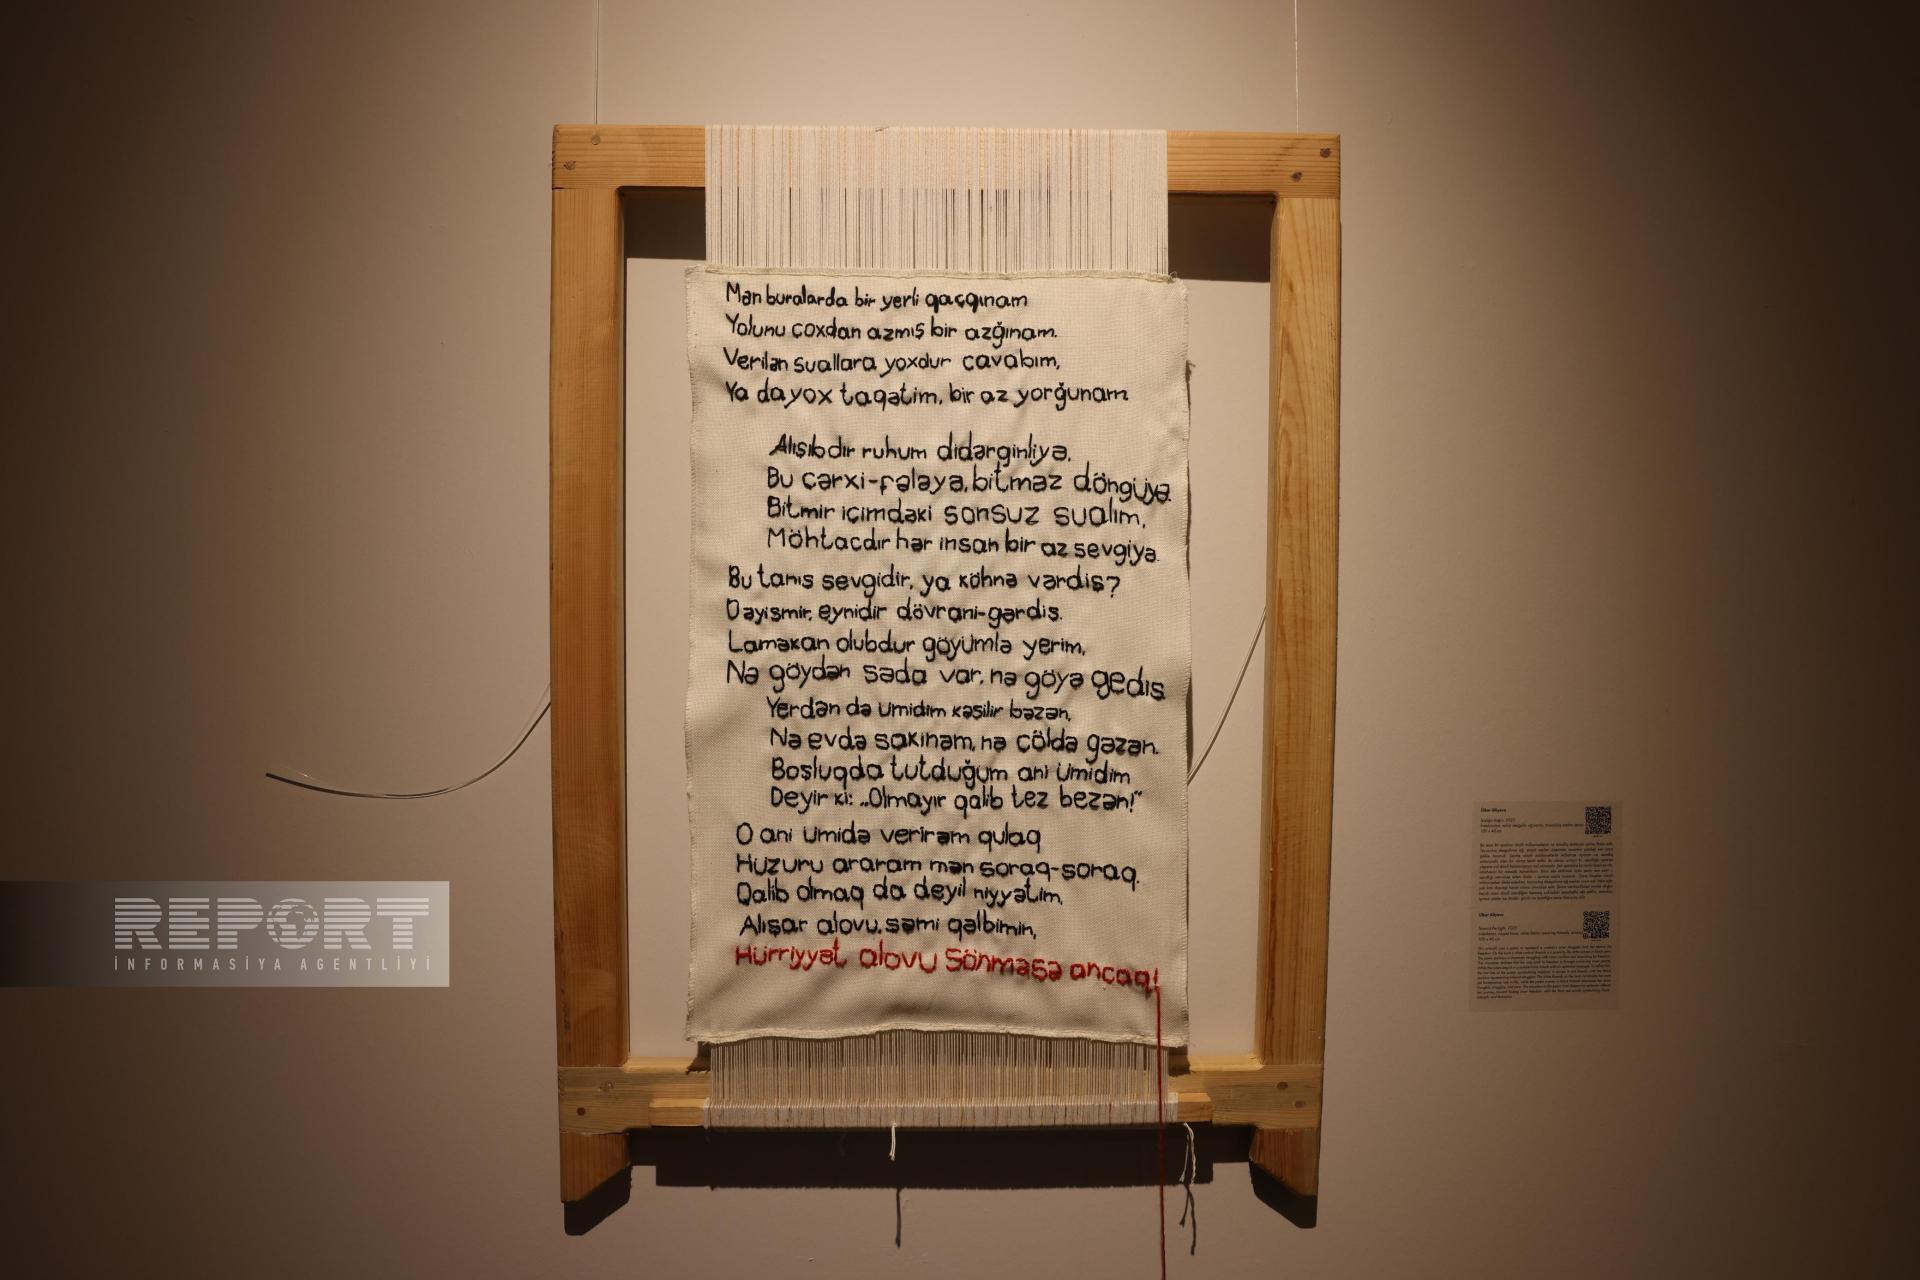 Mən buralarda bir yerli qaçqınam
Yolunu çoxdan azmış bir azğınam.
Verilən suallara yoxdur cavabım,
Ya da yox taqətim, bir az yorğunam
Alışıbdır ruhum didərginliyə,
Bu çərxi-fələyə, bitməz döngüyə.
Bitmir içimdəki sonsuz sualım,
Möhtacdır hər insan bir az sevgiyə.
Bu tanış sevgidir, ya köhnə vərdiş?
Dəyişmir, eynidir dövrani-gərdiş.
Laməkan olubdur göyümlə yerim,
Nə göydən səda var, nə göyə gediş
Yerdən də ümidim kəsilir bəzən,
Nə evdə sakinəm, nə çöldə gəzən.
Boşluqda tutduğum ani ümidim
Deyir ki: „Olmayır qalib tez bezən!"
O ani ümidə verirəm qulaq
Hüzuru araram mən soraq-soraq.
Qalib olmaq da deyil niyyətim,
Alışar alovu, şəmi qəlbimin,
Hürriyyət alovu Sönməsə ancaq!
REPORT
İNFORMASİYA AGENTLİYİ
Ülkər Əliyeva
Ulkar Aliyeva